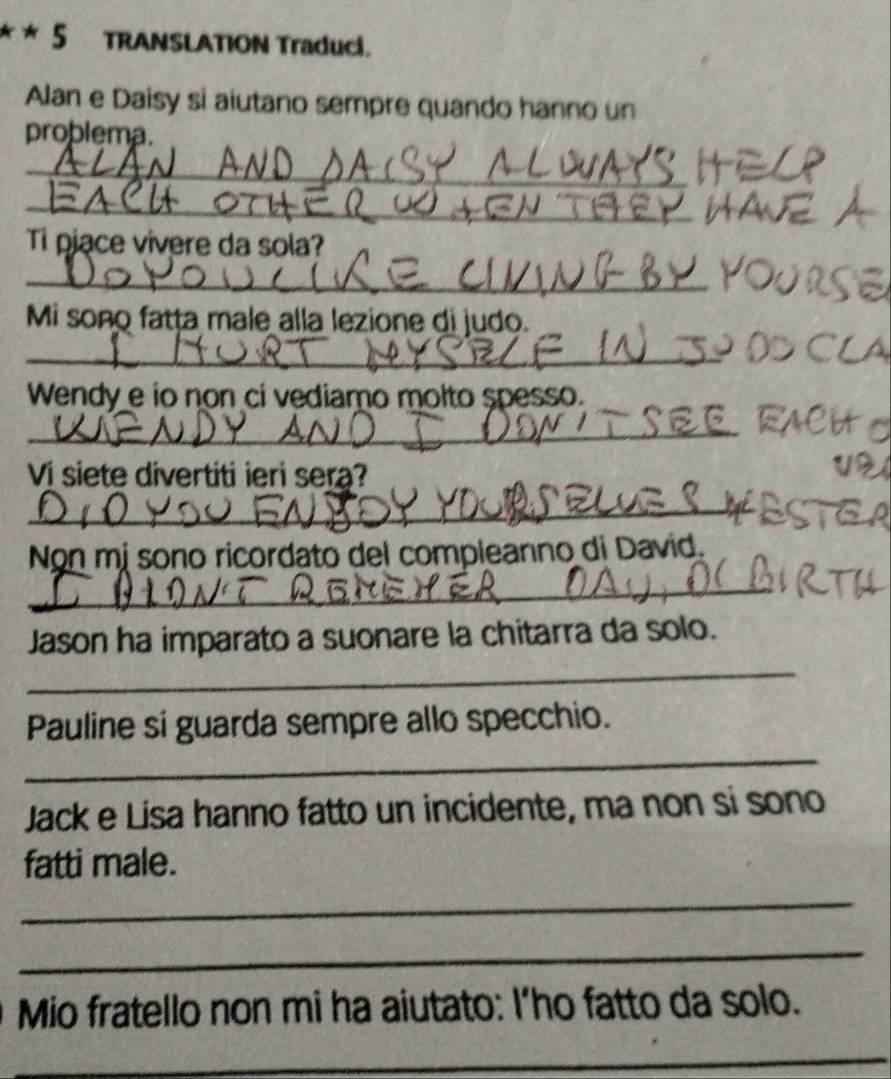 ** 5 TRANSLATION Traduci.
Alan e Daisy si aiutano sempre quando hanno un
problema.
ALAN AND DAISY ALWAYS HELP
EACH OTHER WHEN THEY HAVE A
Ti piace vivere da sola?
DO YOU LIKE LIVING BY YOURSE
Mi sono fatta male alla lezione di judo.
I HURT MYSELF IN JUDO CLA
Wendy e io non ci vediamo molto spesso.
WENDY AND I DON'T SEE EACH O
Vi siete divertiti ieri sera?
DID YOU ENJOY YOURSELVES YESTER
Non mi sono ricordato del compleanno di David.
I DIDN'T REMEMER BIRTH
Jason ha imparato a suonare la chitarra da solo.
Pauline si guarda sempre allo specchio.
Jack e Lisa hanno fatto un incidente, ma non si sono
fatti male.
Mio fratello non mi ha aiutato: l'ho fatto da solo.